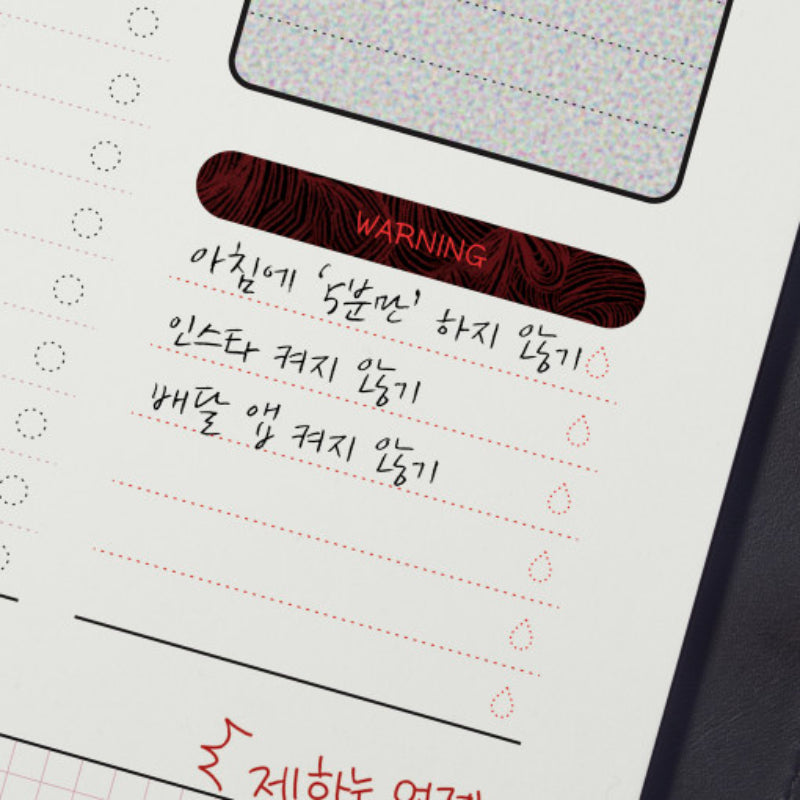 WARNING
아침에 '5분만' 하지 않기
인스타 켜지 않기
배달 앱 켜지 않기